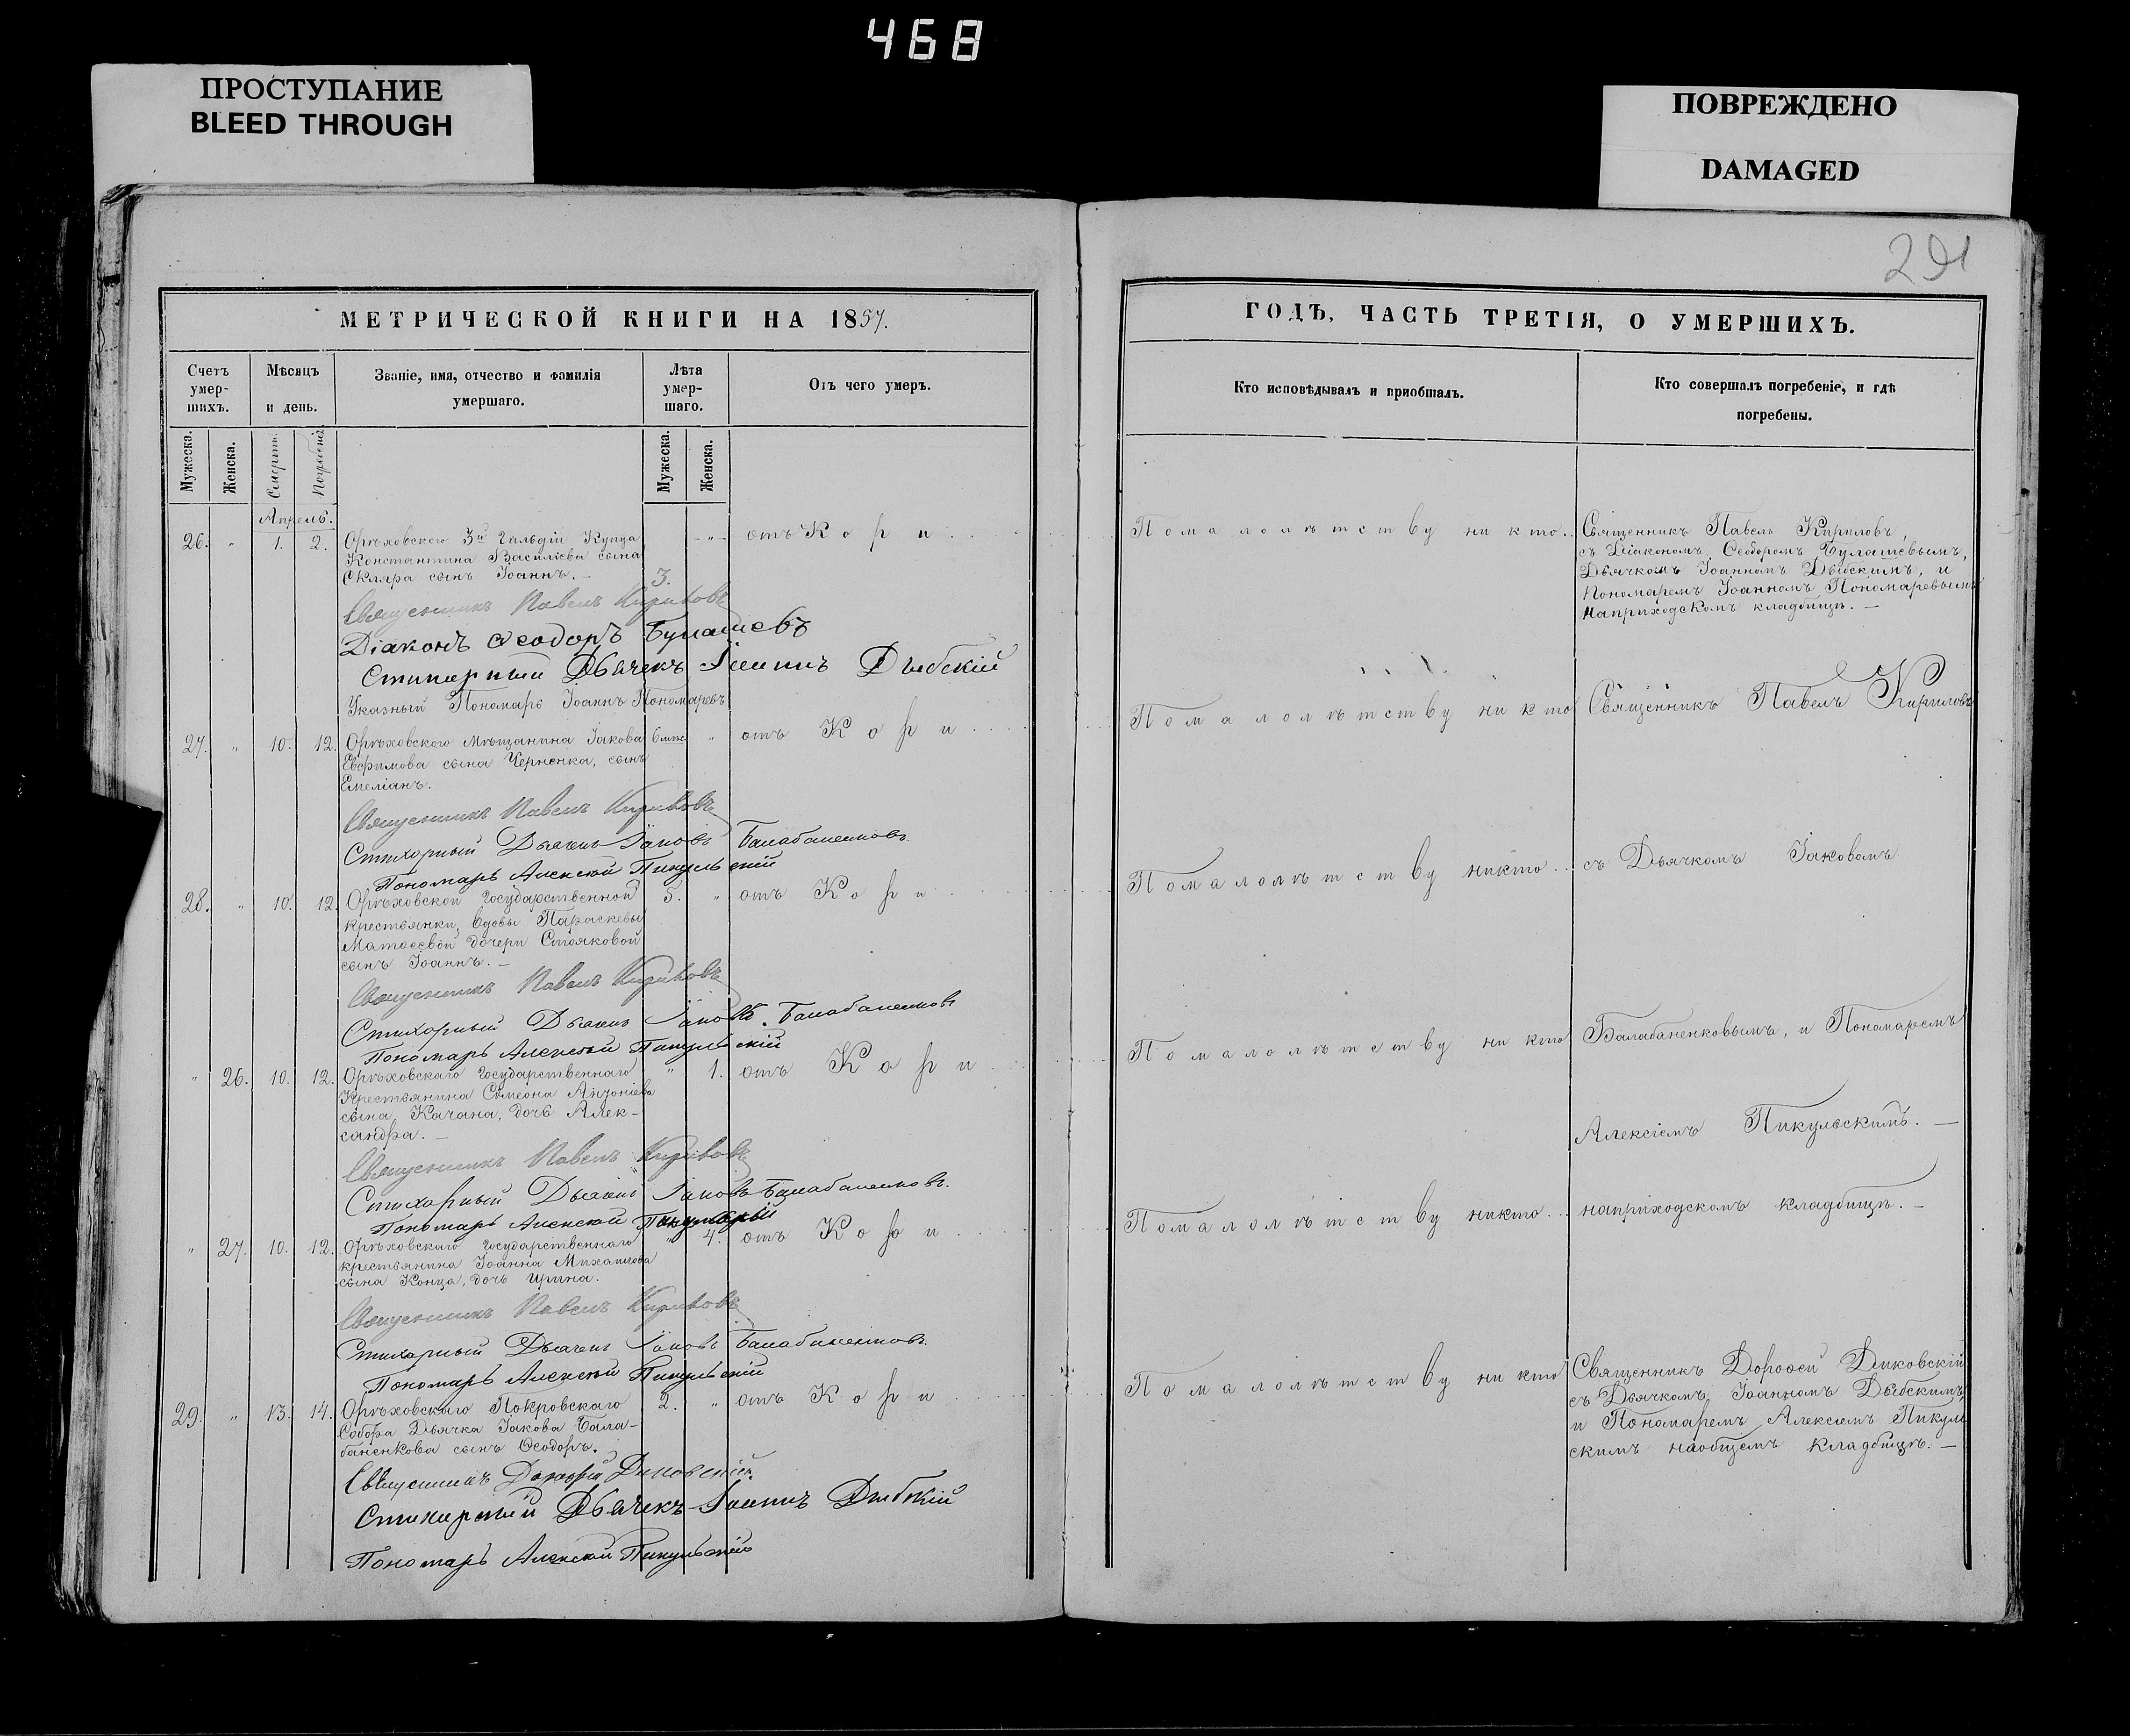 468
ПРОСТУПАНИЕ
BLEED THROUGH
ПОВРЕЖДЕНО
DAMAGED
291
МЕТРИЧЕСКОЙ КНИГИ НА 1857.
Счетъ умер-шихъ.
Мѣсяцъ и день.
Званіе, имя, отчество и фамилія умершаго.
Лѣта умер-шаго.
Отъ чего умеръ.
Мужеска.
Женска.
Смерти.
Погребенія.
Мужеска.
Женска.
Апрель.
26. " 1. 2. Орѣховского 3й Гильдіи Купца 3. " отъ Кори
Константина Василіева сына
Скляра сынъ Іоаннъ. —
Священникъ Павелъ Кириловъ
Діаконъ Ѳеодоръ Булашевъ
Стихарный Дьячекъ Іоаннъ Дыбскій
Указный Пономарь Іоаннъ Пономаревъ
27. " 10. 12. Орѣховского Мѣщанина Іакова 6 мѣс. " отъ Кори
Евфимова сына Черненка, сынъ
Емеліанъ.
Священникъ Павелъ Кириловъ
Стихарный Дьячекъ Іаковъ Балабаненковъ.
Пономарь Алексій Пикульскій
28. " 10. 12. Орѣховской Государственной 5. " отъ Кори
крестьянки, вдовы Параскевы
Матѳеевой дочери Стояковой
сынъ Іоаннъ. —
Священникъ Павелъ Кириловъ
Стихарный Дьячекъ Іаковъ Балабаненковъ
Пономарь Алексій Пикульскій
" 26. 10. 12. Орѣховскаго Государственнаго " 1. отъ Кори
Крестьянина Сѵмеона Антоніева
сына Качана, дочь Алек-
сандра. —
Священникъ Павелъ Кириловъ
Стихарный Дьячекъ Іаковъ Балабаненковъ.
Пономарь Алексій Пикульскій
" 27. 10. 12. Орѣховскаго Государственнаго " 4. отъ Кори
крестьянина Іоанна Михаилова
сына Конца, дочь Ирина.
Священникъ Павелъ Кириловъ
Стихарный Дьячекъ Іаковъ Балабаненковъ.
Пономарь Алексій Пикульскій
29. " 13. 14. Орѣховскаго Покровскаго 2. " отъ Кори
Собора Дьячка Іакова Бала-
баненкова сынъ Ѳеодоръ.
Священникъ Дороѳей Диковскій.
Стихарный Дьячекъ Іоаннъ Дыбскій
Пономарь Алексій Пикульскій
ГОДЪ, ЧАСТЬ ТРЕТІЯ, О УМЕРШИХЪ.
Кто исповѣдывалъ и пріобщалъ.
Кто совершалъ погребеніе, и гдѣ погребены.
Помалолѣтству никто..
Священникъ Павелъ Кириловъ,
съ Діакономъ Ѳеодоромъ Булашевымъ,
Дьячкомъ Іоанномъ Дыбскимъ, и
Пономаремъ Іоанномъ Пономаревымъ
наприходскомъ кладбищѣ. —
Помалолѣтству никто
Священникъ Павелъ Кириловъ
Помалолѣтству никто...
съ Дьячкомъ Іаковомъ
Помалолѣтству никто
Балабаненковымъ, и Пономаремъ
Алексіемъ Пикульскимъ. —
Помалолѣтству никто..
наприходскомъ кладбищѣ. —
Помалолѣтству никто
Священникъ Дороѳей Диковскій
съ Дьячкомъ Іоанномъ Дыбскимъ,
и Пономаремъ Алексіемъ Пикуль
скимъ наобщемъ кладбищѣ. —